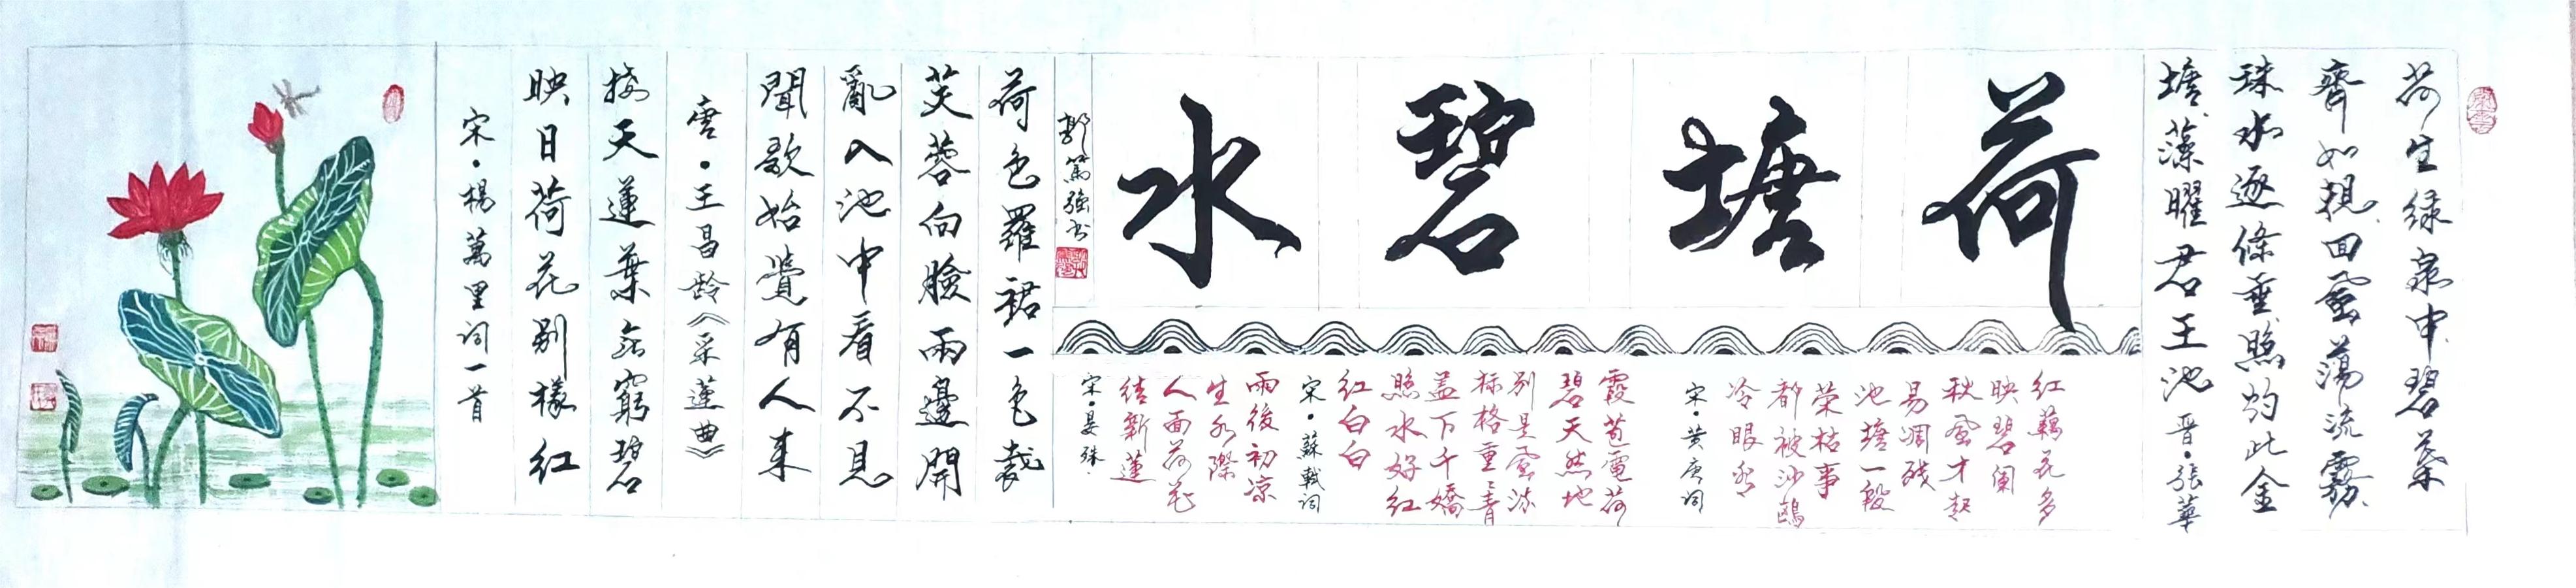 荷生绿泉中碧葉
齊如規回風蕩流霧
珠水逐條垂照灼此金
塘藻曜君王池 晋·張華
荷塘碧水
郭篤強书
红藕花多
映碧阑
秋風才起
易凋残
池塘一段
荣枯事
都被沙鷗
冷眼看
宋·黄庚词
霞苞電荷
碧天然地
别是風流
标格重青
盖下千嬌
照水好红
红白白
宋·蘇軾词
雨後初凉
生水際
人面荷花
结新蓮
宋·晏殊
荷色羅裙一色裁
芙蓉向臉兩邊開
亂入池中看不見
聞歌始覺有人来
唐·王昌龄《采蓮曲》
接天蓮葉无窮碧
映日荷花别樣红
宋·楊萬里词一首